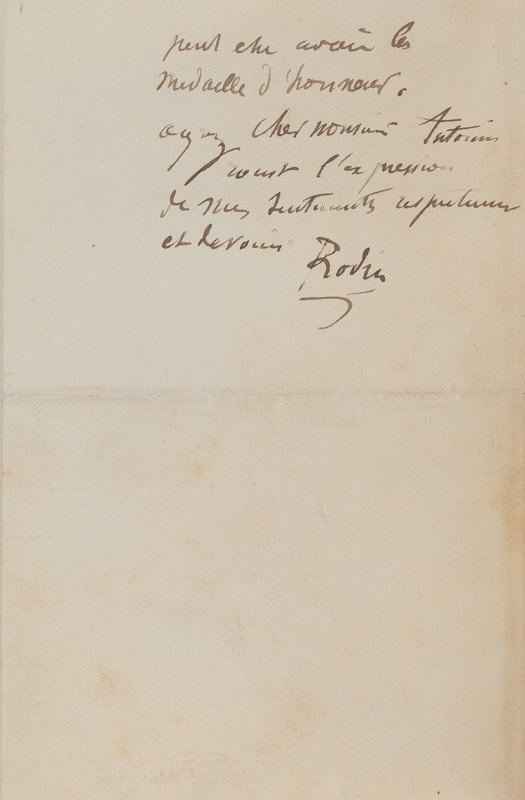 peut etre avoir les
medaille d'honneur.
ayez cher monsieur Antonin
Proust l'expression
de mes sentiments respectueux
et devoués
Rodin